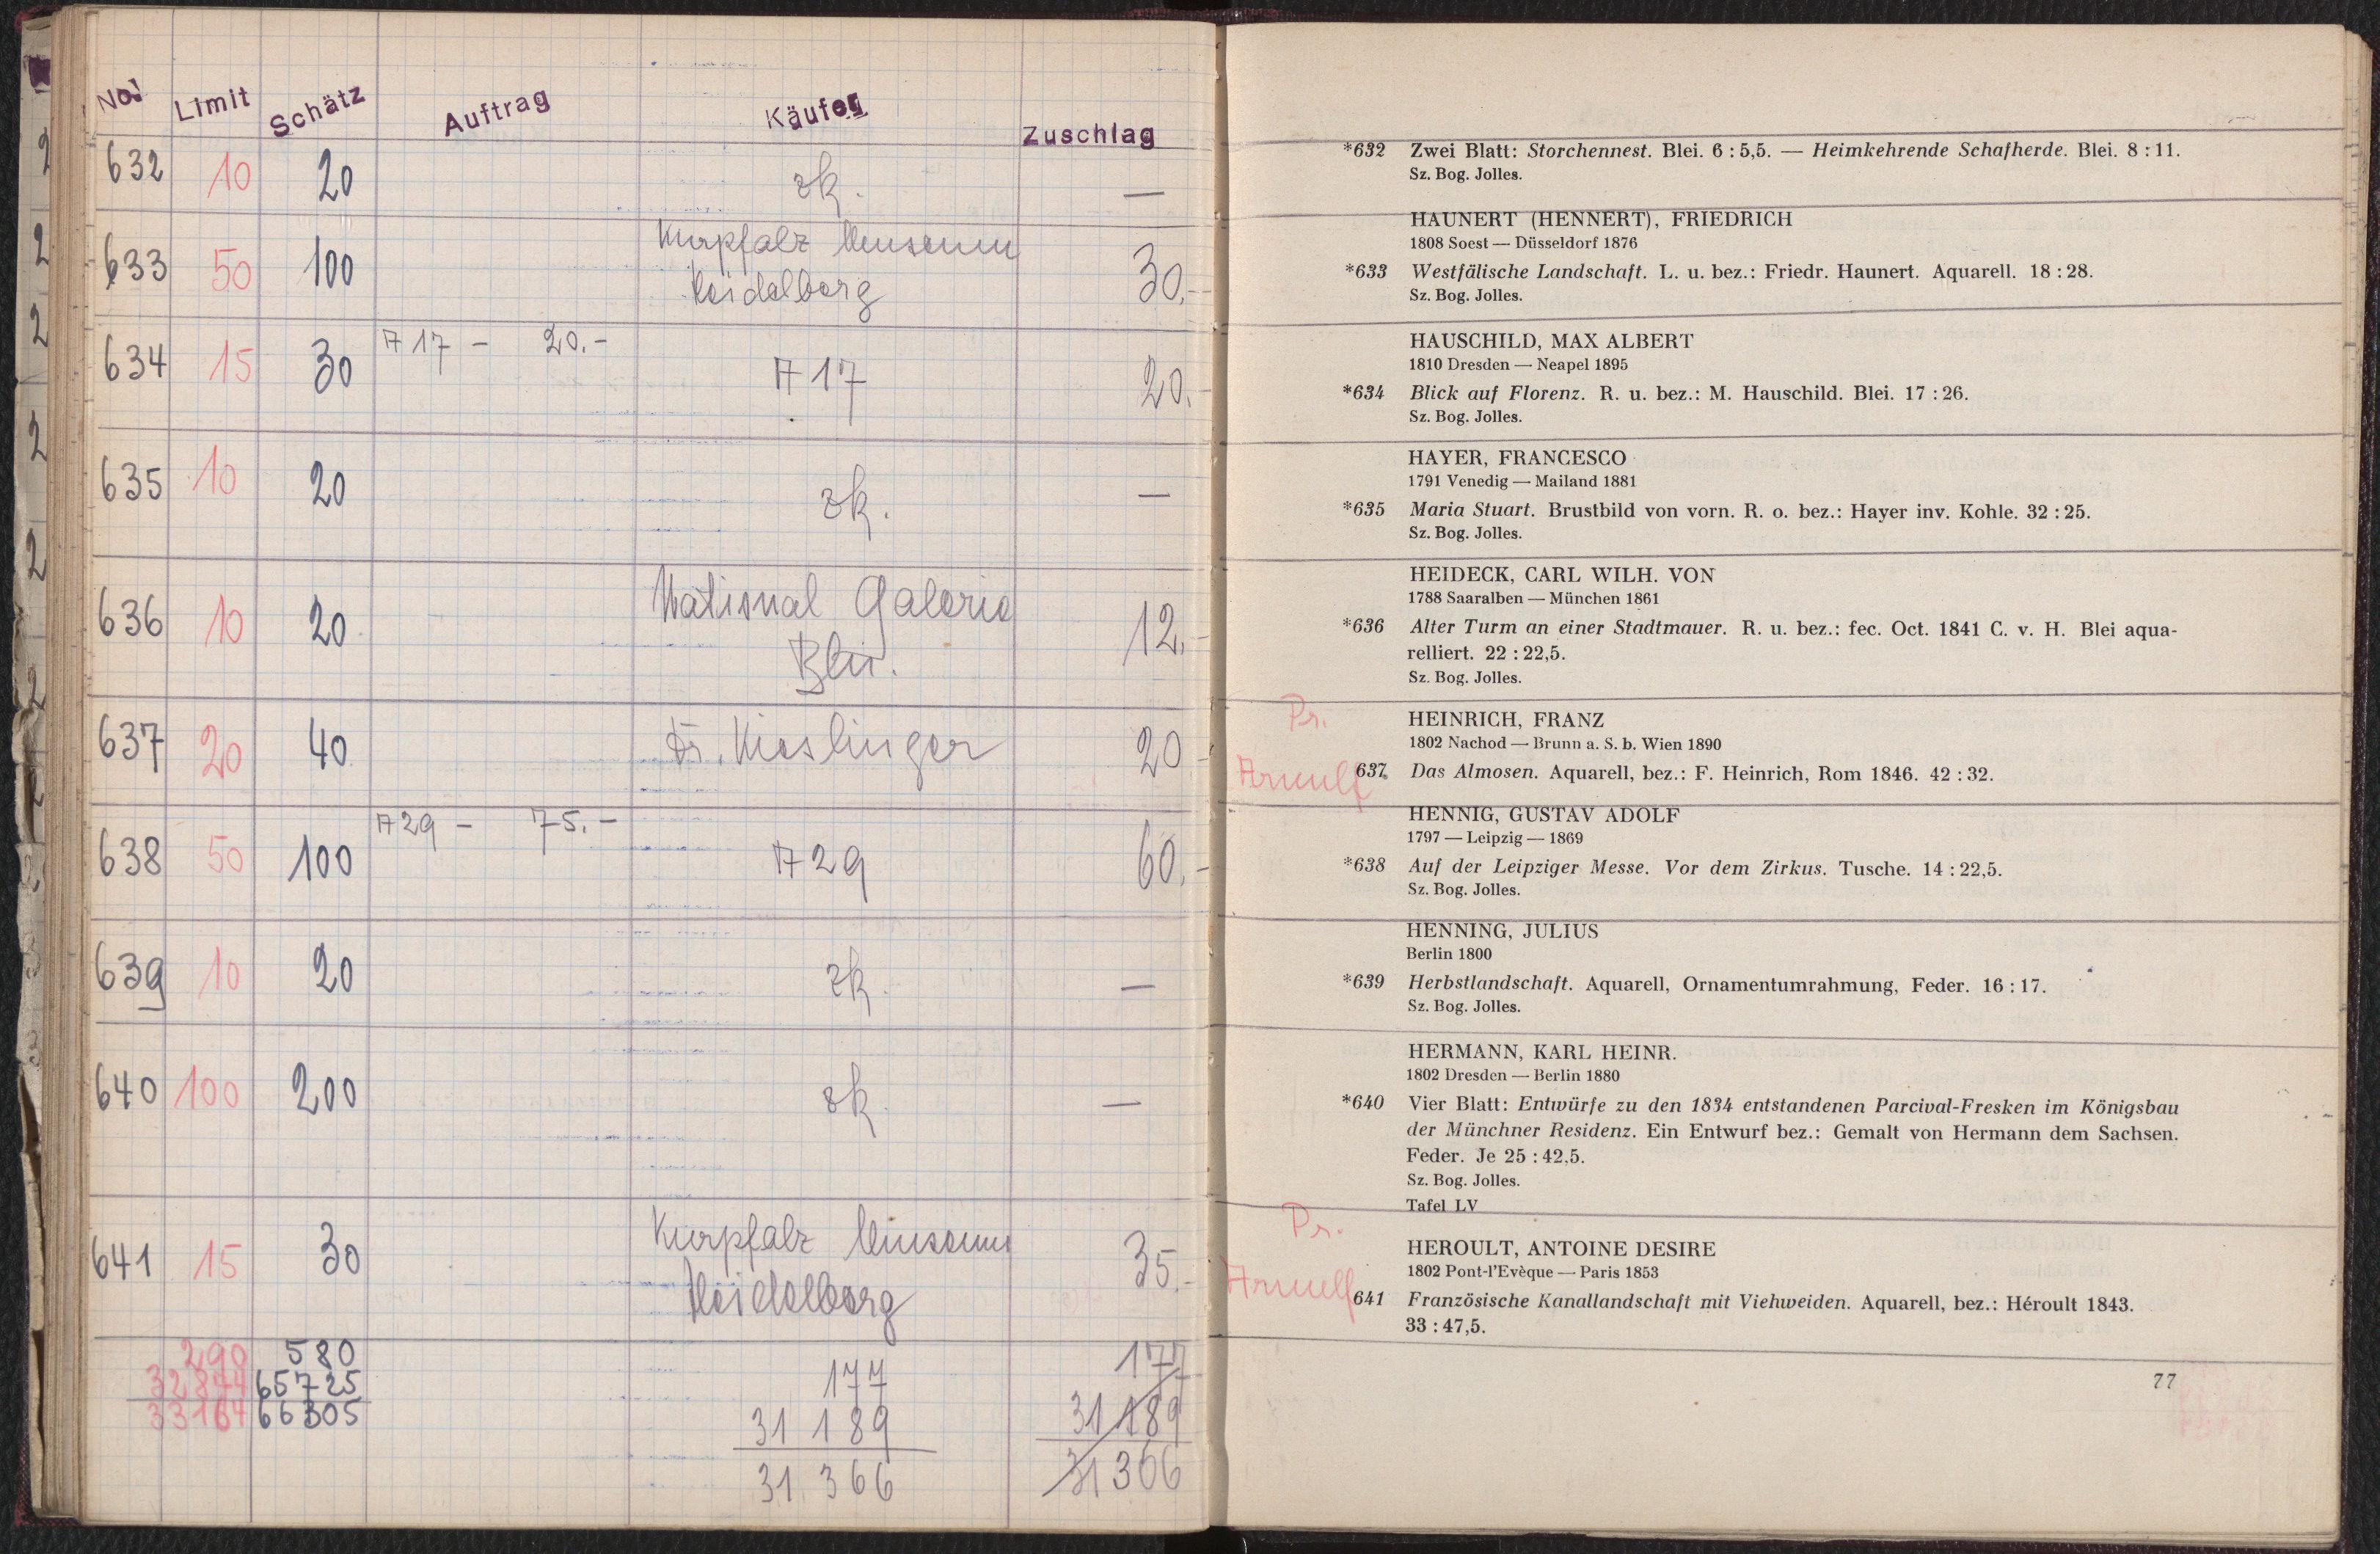 No. Limit Schätz Auftrag Käufer Zuschlag
632 10 20 zk. —
633 50 100 Kurpfalz Museum Heidelberg 30.-
634 15 30 A 17 - 20.- A 17 20.-
635 10 20 zk. —
636 10 20 National Galerie Bln. 12.-
637 20 40 Dr. Kieslinger 20 -
638 50 100 A 29 - 75.- A 29 60.-
639 10 20 zk. —
640 100 200 zk. —
641 15 30 Kurpfalz Museum Heidelberg 35.-
290 580 177 177
32874 65725 31 189 31 189
33164 66305 31.366 31 366
*632 Zwei Blatt: Storchennest. Blei. 6 : 5,5. — Heimkehrende Schafherde. Blei. 8 : 11.
Sz. Bog. Jolles.
HAUNERT (HENNERT), FRIEDRICH
1808 Soest — Düsseldorf 1876
*633 Westfälische Landschaft. L. u. bez.: Friedr. Haunert. Aquarell. 18 : 28.
Sz. Bog. Jolles.
HAUSCHILD, MAX ALBERT
1810 Dresden — Neapel 1895
*634 Blick auf Florenz. R. u. bez.: M. Hauschild. Blei. 17 : 26.
Sz. Bog. Jolles.
HAYER, FRANCESCO
1791 Venedig — Mailand 1881
*635 Maria Stuart. Brustbild von vorn. R. o. bez.: Hayer inv. Kohle. 32 : 25.
Sz. Bog. Jolles.
HEIDECK, CARL WILH. VON
1788 Saaralben — München 1861
*636 Alter Turm an einer Stadtmauer. R. u. bez.: fec. Oct. 1841 C. v. H. Blei aqua-
relliert. 22 : 22,5.
Sz. Bog. Jolles.
Pr.
HEINRICH, FRANZ
1802 Nachod — Brunn a. S. b. Wien 1890
Arnulf 637 Das Almosen. Aquarell, bez.: F. Heinrich, Rom 1846. 42 : 32.
HENNIG, GUSTAV ADOLF
1797 — Leipzig — 1869
*638 Auf der Leipziger Messe. Vor dem Zirkus. Tusche. 14 : 22,5.
Sz. Bog. Jolles.
HENNING, JULIUS
Berlin 1800
*639 Herbstlandschaft. Aquarell, Ornamentumrahmung, Feder. 16 : 17.
Sz. Bog. Jolles.
HERMANN, KARL HEINR.
1802 Dresden — Berlin 1880
*640 Vier Blatt: Entwürfe zu den 1834 entstandenen Parcival-Fresken im Königsbau
der Münchner Residenz. Ein Entwurf bez.: Gemalt von Hermann dem Sachsen.
Feder. Je 25 : 42,5.
Sz. Bog. Jolles.
Tafel LV
Pr.
HEROULT, ANTOINE DESIRE
1802 Pont-l'Evèque — Paris 1853
Arnulf 641 Französische Kanallandschaft mit Viehweiden. Aquarell, bez.: Héroult 1843.
33 : 47,5.
77